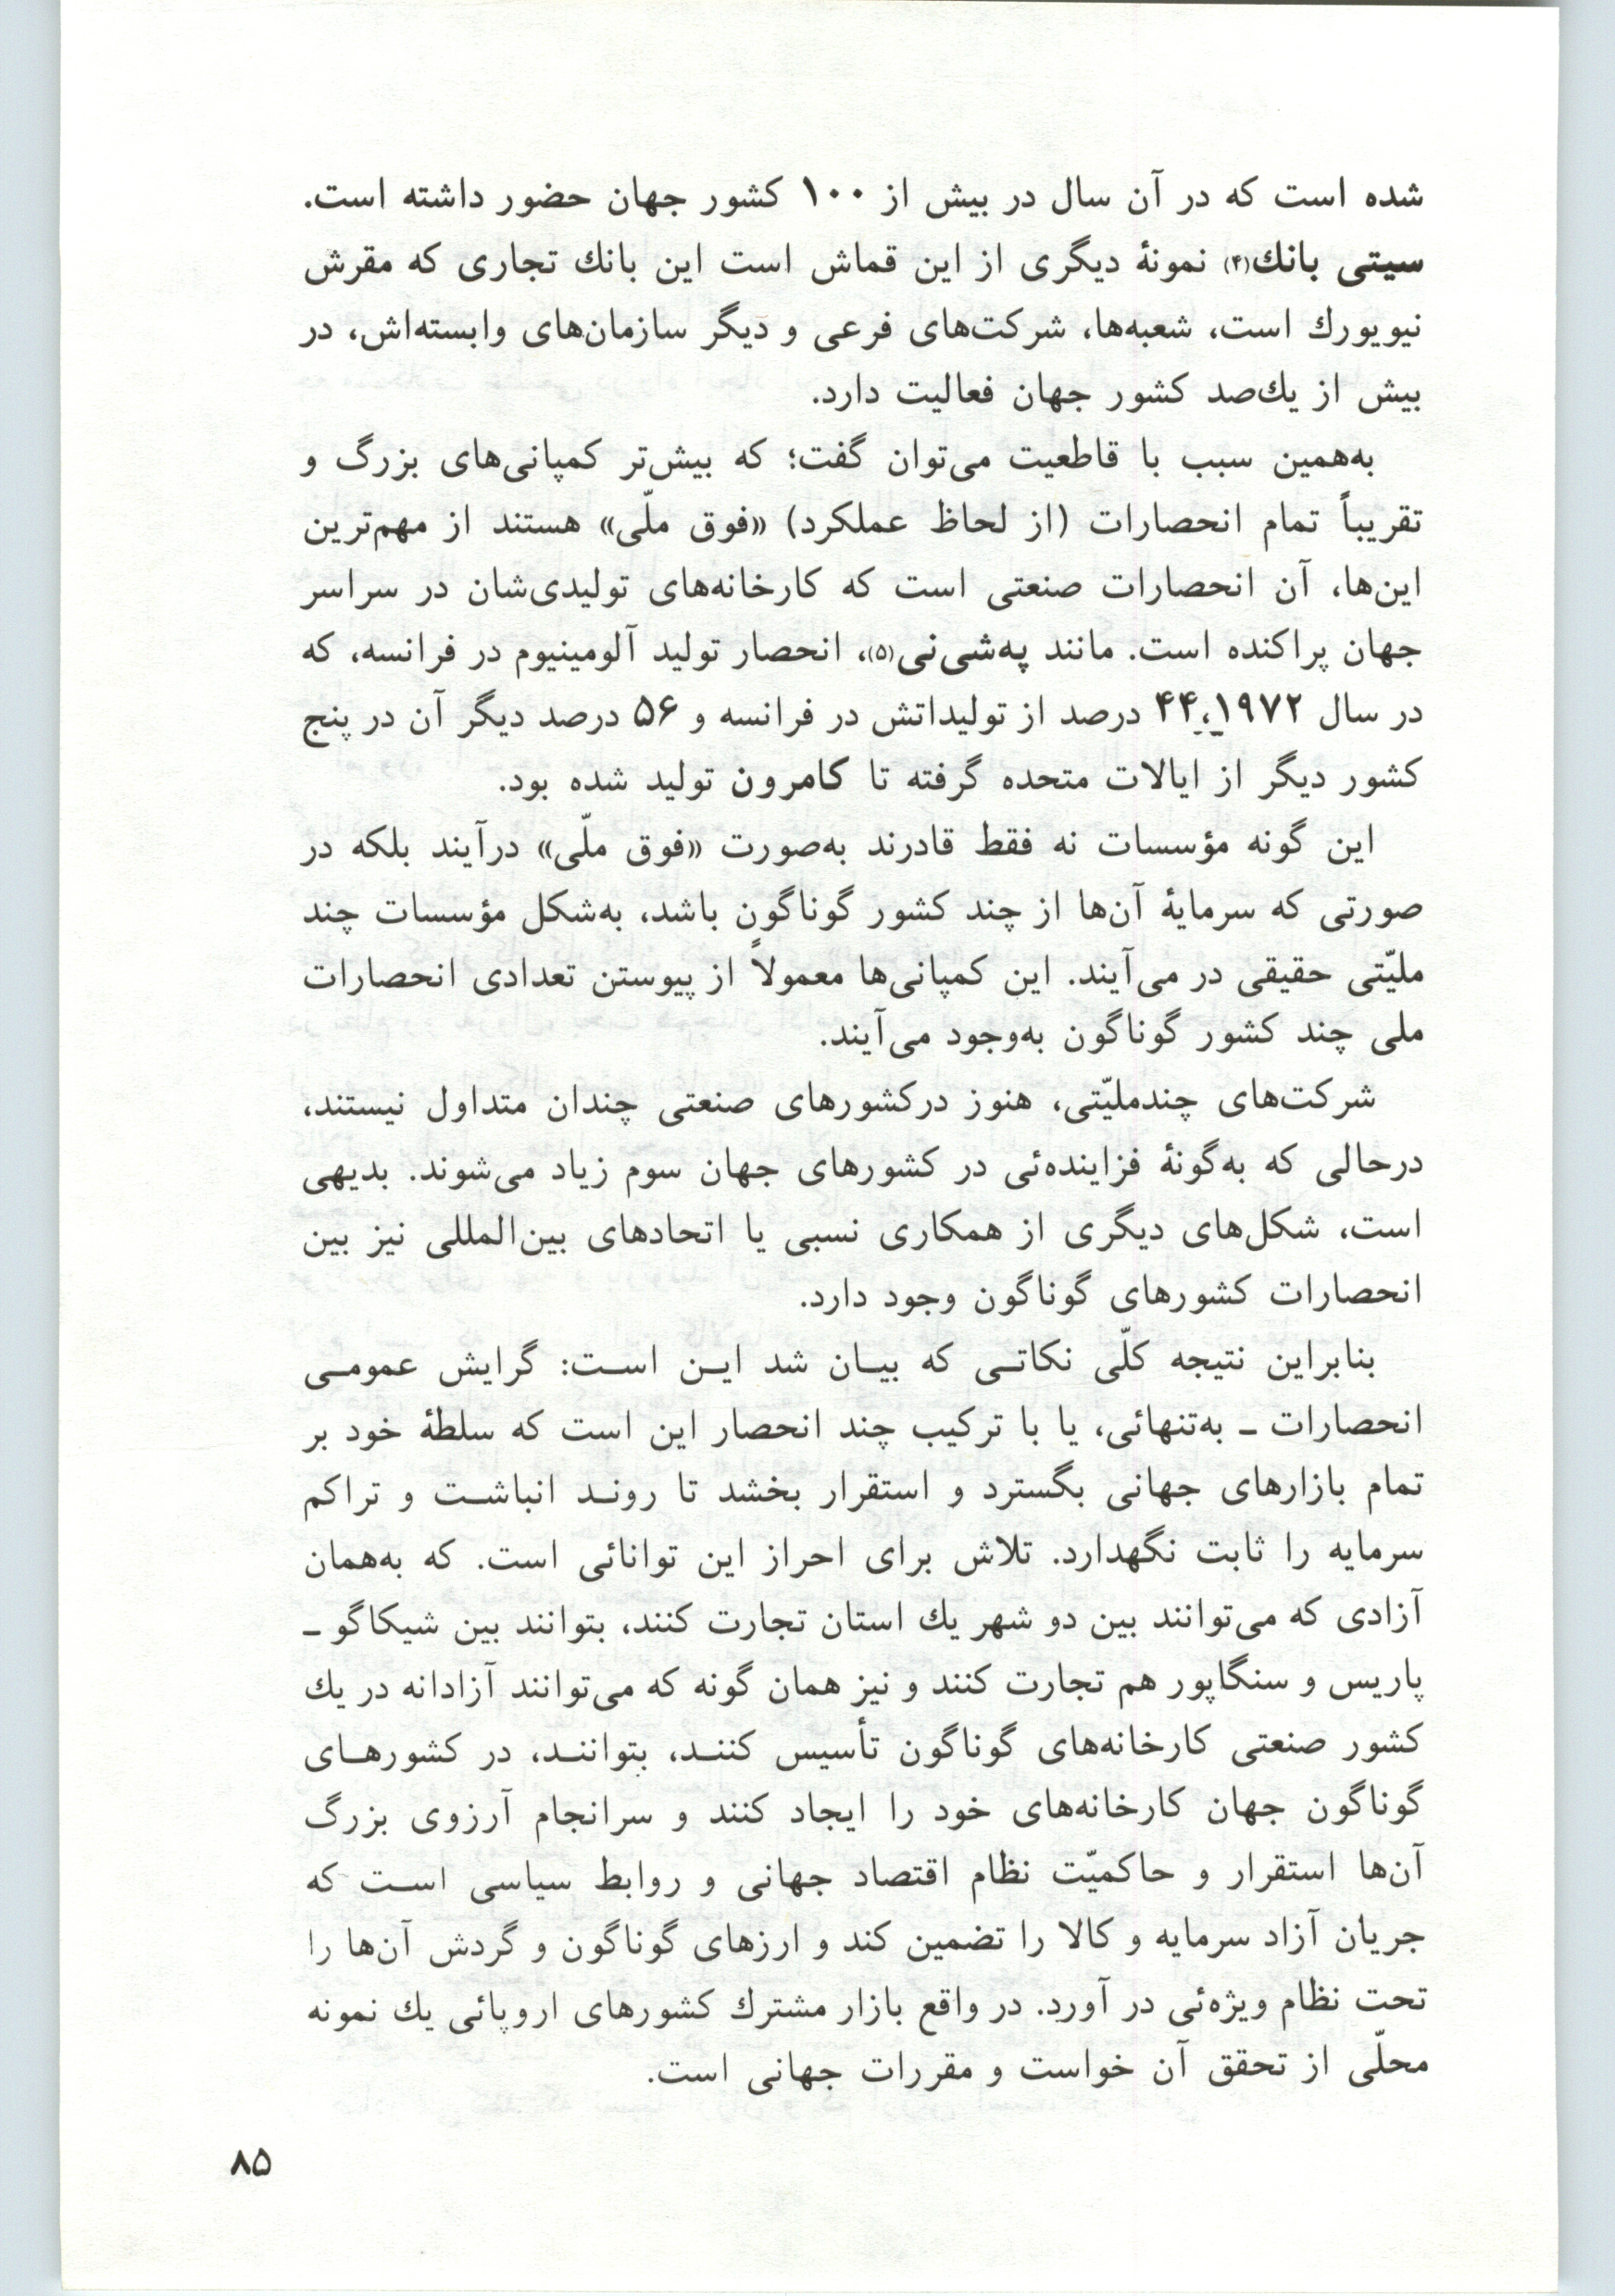 شده است که در آن سال در بیش از ۱۰۰ کشور جهان حضور داشته است.
سیتی بانك(۴) نمونهٔ دیگری از این قماش است این بانك تجاری که مقرش
نیویورك است، شعبه‌ها، شرکت‌های فرعی و دیگر سازمان‌های وابسته‌اش، در
بیش از یك‌صد کشور جهان فعالیت دارد.
به‌همین سبب با قاطعیت می‌توان گفت؛ که بیش‌تر کمپانی‌های بزرگ و
تقریباً تمام انحصارات (از لحاظ عملکرد) «فوق ملّی» هستند از مهم‌ترین
این‌ها، آن انحصارات صنعتی است که کارخانه‌های تولیدی‌شان در سراسر
جهان پراکنده است. مانند په‌شی‌نی(۵)، انحصار تولید آلومینیوم در فرانسه، که
در سال ۱۹۷۲، ۴۴ درصد از تولیداتش در فرانسه و ۵۶ درصد دیگر آن در پنج
کشور دیگر از ایالات متحده گرفته تا کامرون تولید شده بود.
این گونه مؤسسات نه فقط قادرند به‌صورت «فوق ملّی» درآیند بلکه در
صورتی که سرمایهٔ آن‌ها از چند کشور گوناگون باشد، به‌شکل مؤسسات چند
ملیّتی حقیقی در می‌آیند. این کمپانی‌ها معمولاً از پیوستن تعدادی انحصارات
ملی چند کشور گوناگون به‌وجود می‌آیند.
شرکت‌های چندملیّتی، هنوز درکشورهای صنعتی چندان متداول نیستند،
درحالی که به‌گونهٔ فزاینده‌ئی در کشورهای جهان سوم زیاد می‌شوند. بدیهی
است، شکل‌های دیگری از همکاری نسبی یا اتحادهای بین‌المللی نیز بین
انحصارات کشورهای گوناگون وجود دارد.
بنابراین نتیجه کلّی نکاتـی که بیـان شد ایـن اسـت: گرایش عمومـی
انحصارات ـ به‌تنهائی، یا با ترکیب چند انحصار این است که سلطهٔ خود بر
تمام بازارهای جهانی بگسترد و استقرار بخشد تا رونـد انباشـت و تراکم
سرمایه را ثابت نگهدارد. تلاش برای احراز این توانائی است. که به‌همان
آزادی که می‌توانند بین دو شهر یك استان تجارت کنند، بتوانند بین شیکاگو ـ
پاریس و سنگاپور هم تجارت کنند و نیز همان گونه که می‌توانند آزادانه در یك
کشور صنعتی کارخانه‌های گوناگون تأسیس کننـد، بتواننـد، در کشورهـای
گوناگون جهان کارخانه‌های خود را ایجاد کنند و سرانجام آرزوی بزرگ
آن‌ها استقرار و حاکمیّت نظام اقتصاد جهانی و روابط سیاسی اسـت که
جریان آزاد سرمایه و کالا را تضمین کند و ارزهای گوناگون و گردش آن‌ها را
تحت نظام ویژه‌ئی در آورد. در واقع بازار مشترك کشورهای اروپائی یك نمونه
محلّی از تحقق آن خواست و مقررات جهانی است.
۸۵